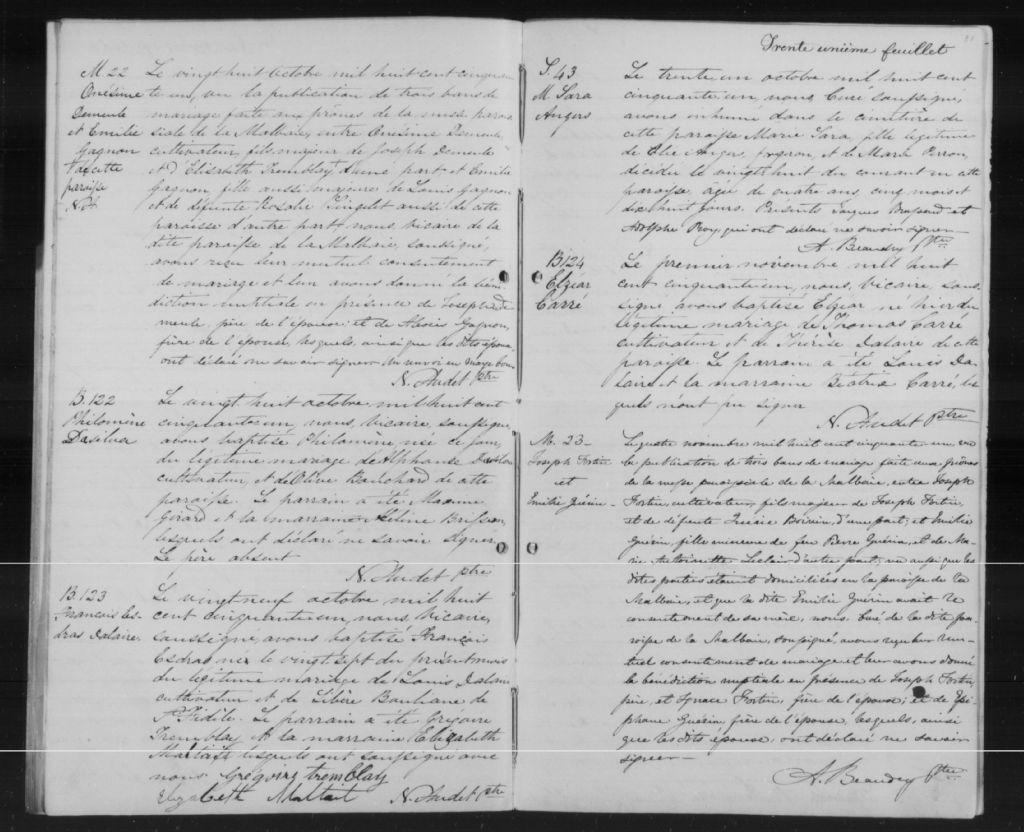 M 22
Onésime
Demeule
et Emilie
Gagnon
† de cette
paroisse
N. A.
Le vingt huit octobre mil huit cent cinquan
te un, vu la publication de trois bans de
mariage faite aux prônes de la messe parois
siale de la Malbaie, entre Onésime Demeule
cultivateur, fils majeur de Joseph Demeule
et d'Elisabeth Tremblay † d'une part et Emilie
Gagnon, fille aussi majeure de Louis Gagnon
et de défunte Rosalie aussi de cette
paroisse d'autre part, nous, vicaire de la
dite paroisse de la Malbaie, soussigné,
avons reçu leur mutuel consentement
de mariage et leur avons donné la béné
diction nuptiale en présence de Joseph De
meule, père de l'époux; et de Alexis Gagnon,
frère de l'épouse, lesquels, ainsi que les dits époux
ont déclaré ne savoir signer. Un renvoi en marge bon.
N. Audet Ptre
B. 122
Philomène
Dasilva
Le vingt huit octobre, mil huit cent
cinquante un, nous, vicaire, soussigné,
avons baptisé Philomène née ce jour,
du légitime mariage de Alphonse Dasilva
cultivateur, et de Olive Bouchard de cette
paroisse. Le parrain a été Maxime
Girard et la marraine Héline Brisson
lesquels ont déclaré ne savoir signer
Le père absent
N. Audet Ptre
B. 123
François Es-
dras Dalaire
Le vingt neuf octobre mil huit
cent cinquante un, nous, vicaire,
soussigné, avons baptisé François
Esdras né le vingt sept du présent mois
du légitime mariage de Louis Dalaire
cultivateur et de Libère Bouliane de
St Fidèle. Le parrain a été Grégoire
Tremblay et la marraine Elizabeth
Maltait lesquels ont soussigné avec
nous Grégoire tremblay
Elizabeth Maltait N. Audet Ptre
Trente unième feuillet
31
S. 43
M. Sara
Angers
Le trente un octobre mil huit cent
cinquante un, nous Curé soussigné,
avons inhumé dans le cimetière de
cette paroisse Marie Sara, fille légitime
de Elie Angers, forgeron, et de Marie Perron,
décédée le vingt huit du courant en cette
paroisse, âgée de quatre ans, cinq mois et
dix huit jours. Présents Jacques Brassard et
Adolphe Roy, qui ont déclaré ne savoir signer
A. Beaudry Ptre
B 124
Elzéar
Carré
Le premier novembre mil huit
cent cinquante un, nous, vicaire, sous
signé avons baptisé Elzéar né hier du
légitime mariage de Thomas Carré
cultivateur et de Thérèse Dalaire de cette
paroisse. Le parrain a été Louis Da-
laire et la marraine Béatrix Carré, les
quels n'ont pu signer
N. Audet Ptre
M. 23
Joseph Fortin
et
Emilie Guérin
Le quatre novembre mil huit cent cinquante un vu
la publication de trois bans de mariage faite aux prônes
de la messe paroissiale de la Malbaie, entre Joseph
Fortin, cultivateur, fils majeur de Joseph Fortin,
et de défunte Boivin, d'une part; et Emilie
Guérin, fille mineure de feu Pierre Guérin, et de Ma-
rie Antoinette Leclair d'autre part; vu aussi que les
dites parties étaient domiciliées en la paroisse de la
Malbaie, et que la dite Emilie Guérin avait le
consentement de sa mère, nous, Curé de la dite pa-
roisse de la Malbaie, soussigné, avons reçu leur mu-
tuel consentement de mariage et leur avons donné
la bénédiction nuptiale en présence de Joseph Fortin,
père, et Ignace Fortin, frère de l'époux; et de Epi-
phane Guérin, frère de l'épouse, lesquels, ainsi
que les dits époux, ont déclaré ne savoir
signer
A. Beaudry Ptre